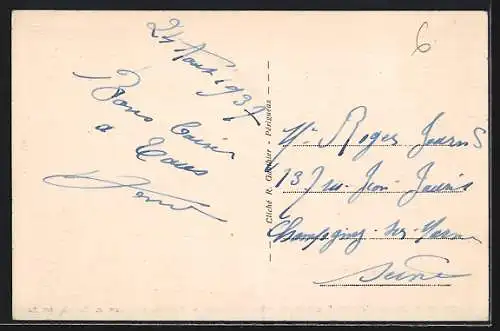 24 Aout 1937
Bons Baisers
a tous
6
Cliché R. Gauthier - Périgueux
Mr Roger
137 rue Jean Jaurès
Champigny-sur-Marne
Seine